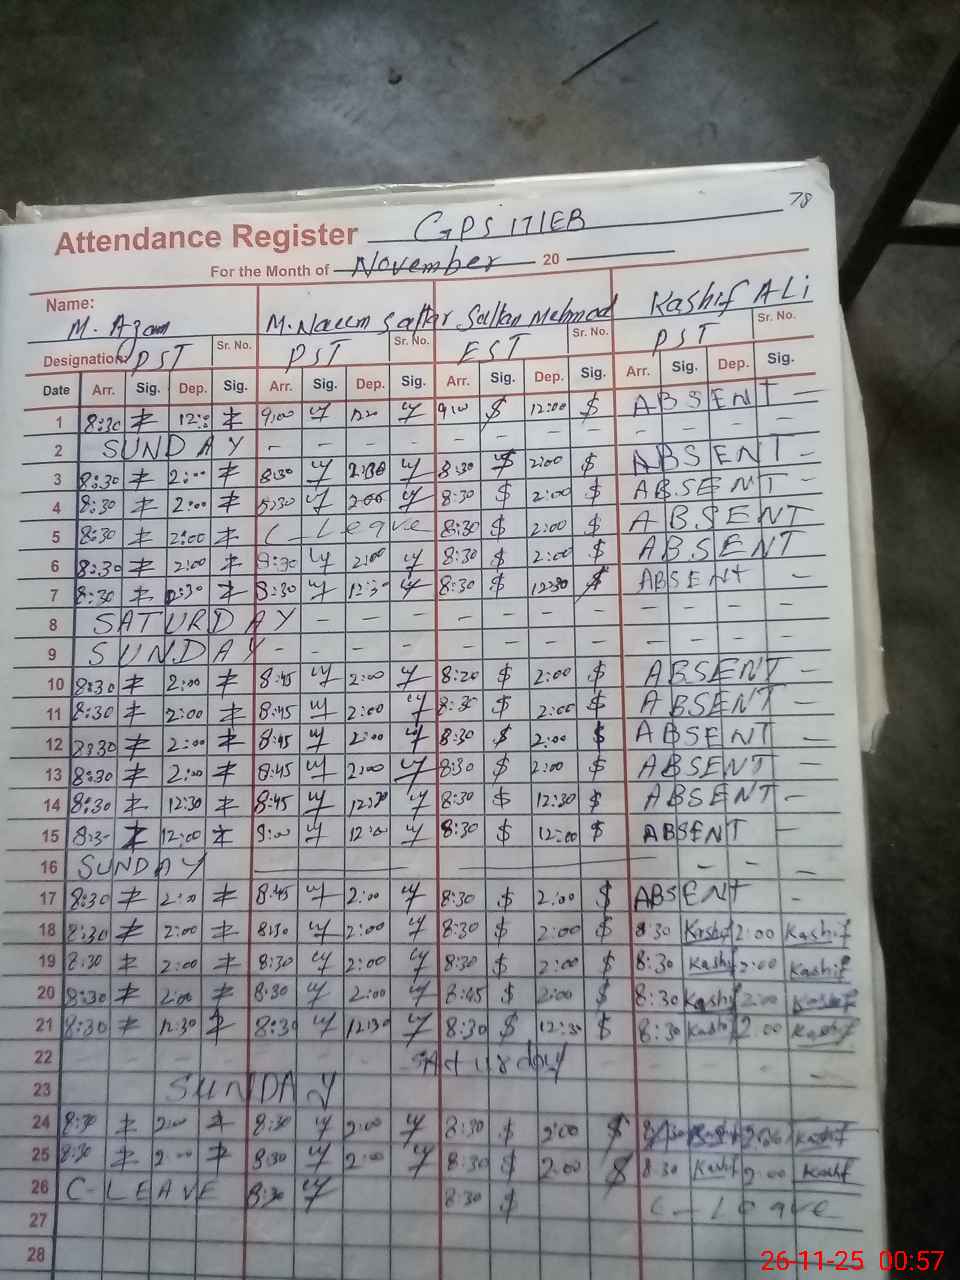 78
Attendance Register GPS 171EB
For the Month of November 20
Name: M. Azam M. Naeem Sattar Sultan Mehmod Kashif ALi
Designation PST Sr. No. PST Sr. No. EST Sr. No. PST Sr. No.
Date Arr. Sig. Dep. Sig. Arr. Sig. Dep. Sig. Arr. Sig. Dep. Sig. Arr. Sig. Dep. Sig.
1 8:30 9:00 9:00 $ 12:00 $ ABSENT -
2 SUNDAY - - - - - - - - - - - -
3 8:30 2:00 8:30 8:30 $ 2:00 $ ABSENT -
4 8:30 2:00 2:00 8:30 $ 2:00 $ ABSENT -
5 8:30 2:00 C-Leave 8:30 $ 2:00 $ ABSENT
6 8:30 2:00 8:30 2:00 8:30 $ 2:00 $ ABSENT
7 8:30 8:30 12:30 8:30 $ $ ABSENT -
8 SATURDAY - - - - - - - - - -
9 SUNDAY - - - - - - - - - - - -
10 8:30 2:00 8:45 2:00 8:20 $ 2:00 $ ABSENT -
11 8:30 2:00 8:45 2:00 $ 2:00 $ ABSENT -
12 2:00 8:45 2:00 8:30 $ 2:00 $ ABSENT -
13 8:30 2:00 8:45 2:00 8:30 $ 2:00 $ ABSENT -
14 8:30 12:30 8:45 8:30 $ 12:30 $ ABSENT -
15 12:00 9:00 12:00 8:30 $ 12:00 $ ABSENT -
16 SUNDAY - - -
17 8:30 2:00 8:45 2:00 8:30 $ 2:00 $ ABSENT -
18 8:30 2:00 8:30 2:00 8:30 $ 2:00 $ 8:30 Kashif 2:00 Kashif
19 8:30 2:00 8:30 2:00 8:30 $ 2:00 $ 8:30 Kashif 2:00 Kashif
20 8:30 2:00 8:30 2:00 8:45 $ 2:00 $ 8:30 Kashif 2:00 Kashif
21 8:30 12:30 8:30 12:30 8:30 $ 12:30 $ 8:30 Kashif 2:00 Kashif
22 - - - - - - - SAturday - - - -
23 SUNDAY
24 8:30 2:00 8:30 2:00 8:30 $ 2:00 $ Kashif
25 8:30 2:00 8:30 2:00 8:30 $ 2:00 $ 8:30 Kashif 2:00 Kashif
26 C-LEAVE 8:30 8:30 $ C-Leave
27
28
26-11-25 00:57